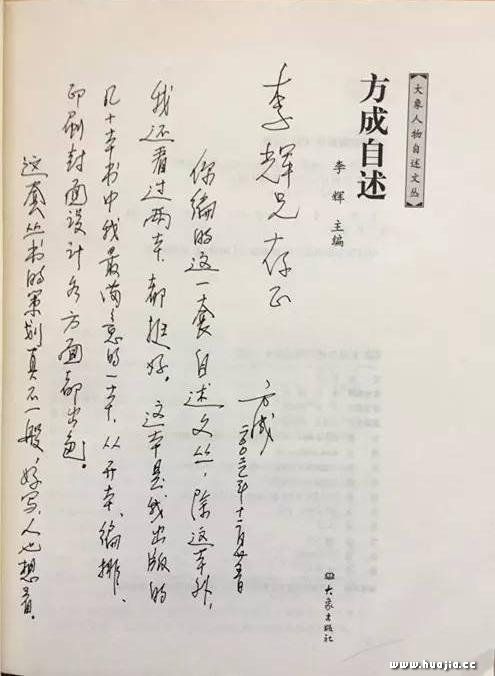 【大象人物自述文丛】
方成自述
李辉 主编
大象出版社
李辉兄存正
方成
二〇〇三年十二月廿五日
你编的这一套自述文丛，除这本外，
我还看过两本，都挺好。这本是我出版的
几十本书中我最满意的一本，从开本、编排、
印刷封面设计各方面都出色。
这套丛书的策划真不一般，好写，人也想看。
www.huajia.cc